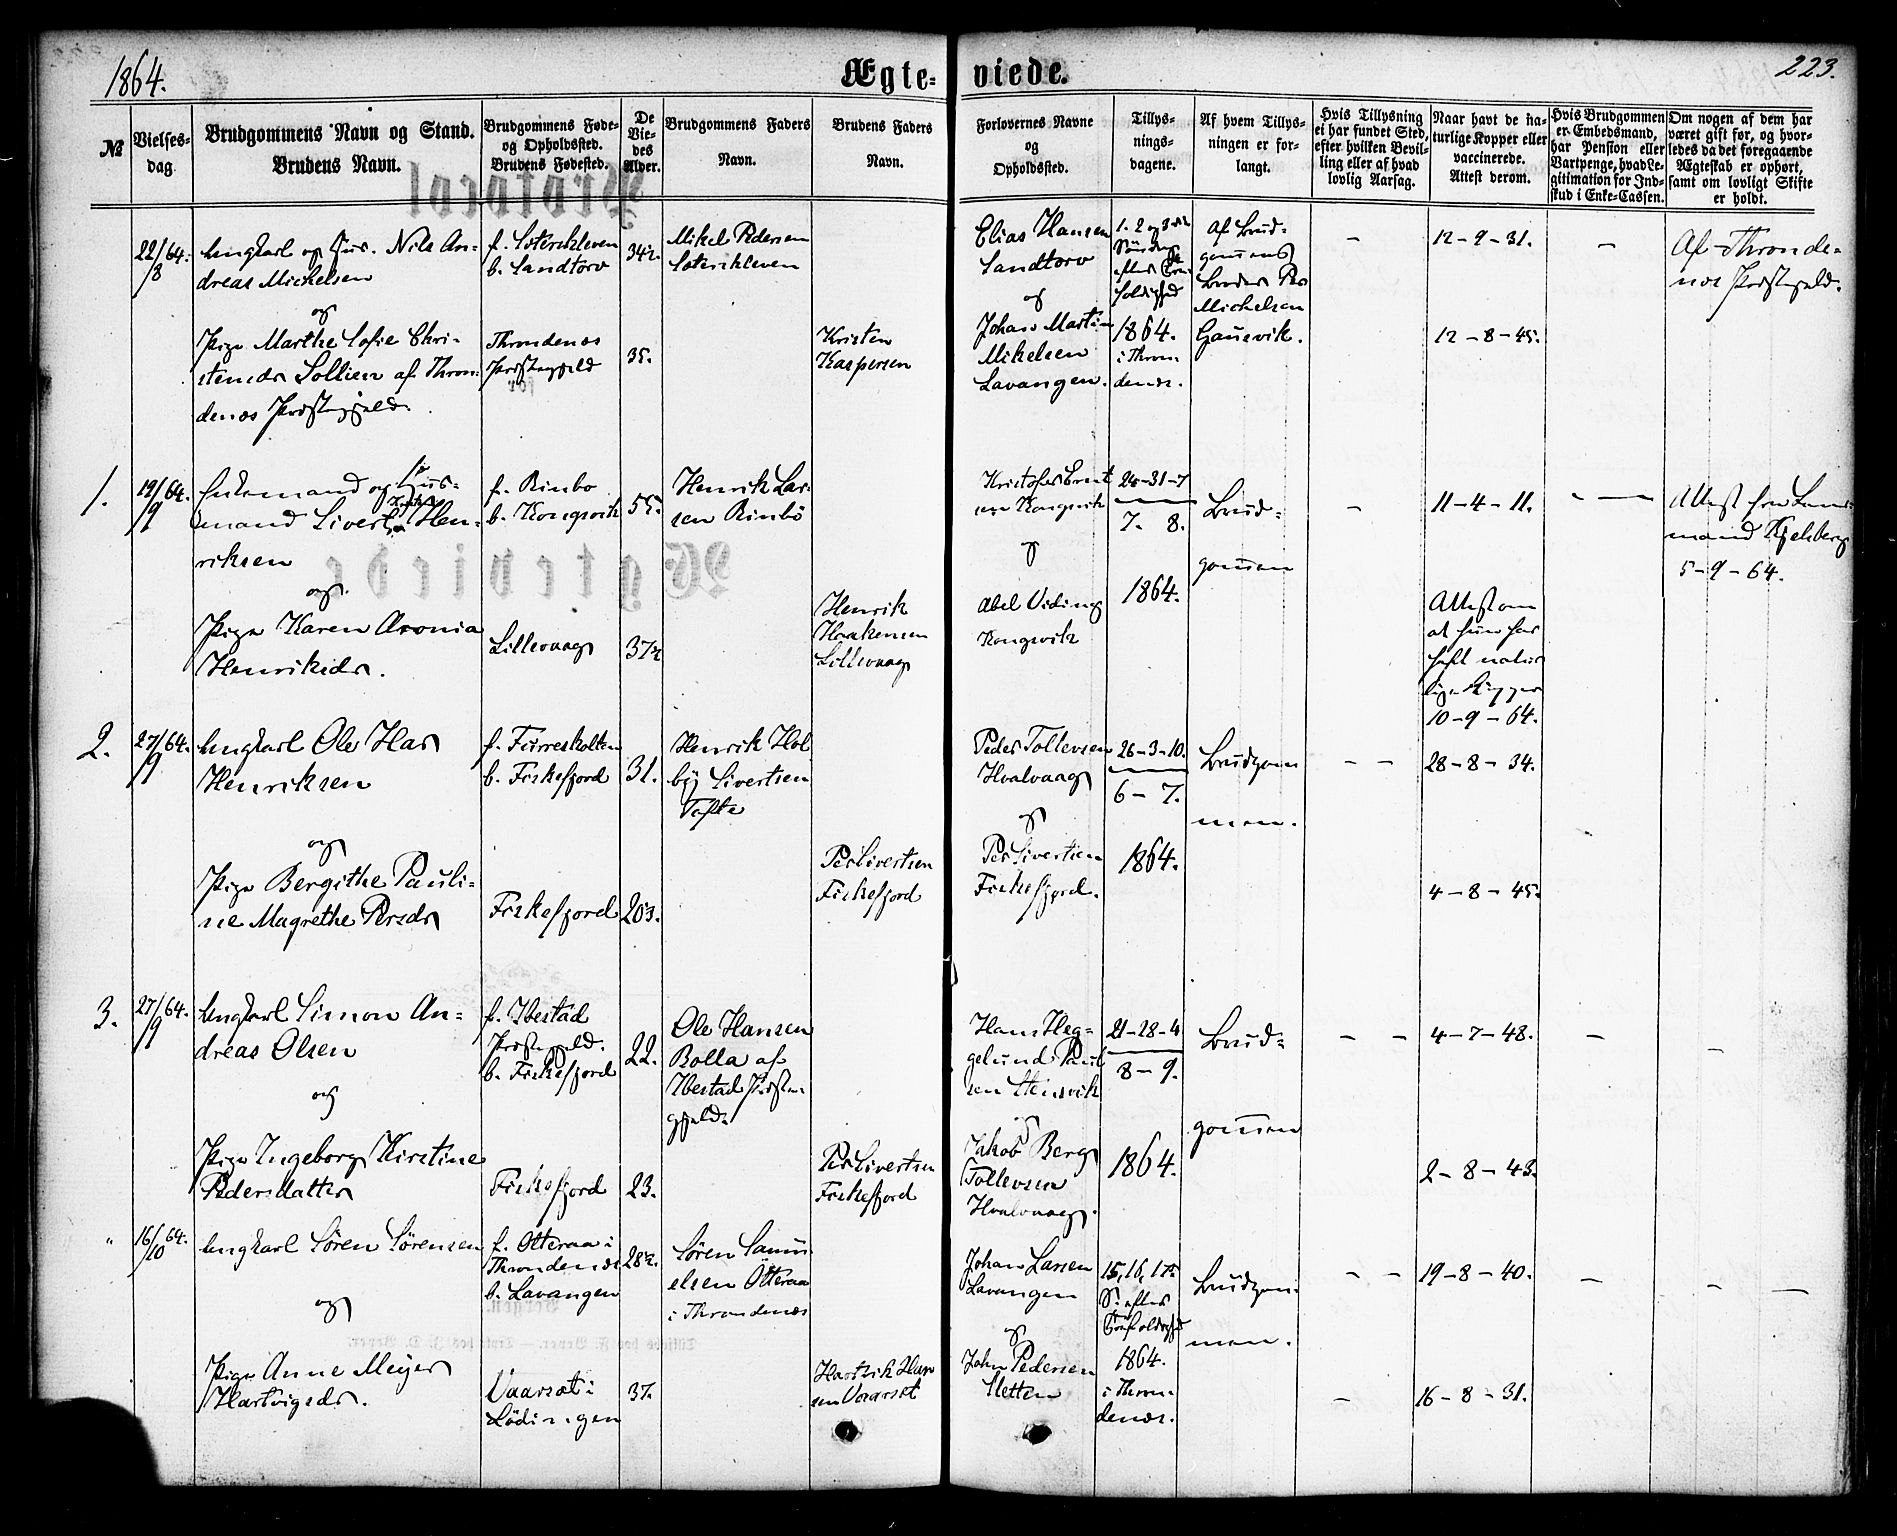 1864.
Ægte-
viede.
223.
№
Vielses-
dag.
Brudgommens Navn og Stand.
Brudens Navn.
Brudgommens Føde-
og Opholdssted.
Brudens Fødested.
De
Vie-
des
Alder.
Brudgommens Faders
Navn.
Brudens Faders
Navn.
Forlovernes Navne
og
Opholdssted.
Tillys-
nings-
dagene.
Af hvem Tillys-
ningen er for-
langt.
Hvis Tillysning
ei har fundet Sted,
efter hvilken Bevil-
ling eller af hvad
lovlig Aarsag.
Naar havt de na-
turlige Kopper eller
vaccinerede.
Attest derom.
Hvis Brudgommen
er Embedsmand,
har Pension eller
Vartpenge, hvad Le-
gitimation for Ind-
skud i Enke-Cassen.
Om nogen af dem har
været gift før, og hvor-
ledes da det foregaaende
Ægteskab er ophørt,
samt om lovligt Skifte
er holdt.
22/8 64.
Ungkarl og Hus. Nils An-
dreas Michelsen
og
Pige Marthe Sofie Chri-
stensdr Sollien af Thron-
denæs Præstegjeld.
b. Sandtorv
Throndenæs
Præstegjeld
34½.
35.
Mikel Pedersen
Kristen
Kaspersen
Elias Hansen
Sandtorv
og
Johan Martin
Mikelsen
Lavangen.
1. 2 og 3die
Søndag
efter
1864.
i Thron-
denæs.
Af Brud-
gommens
Broder Per
Michelsen
Gausvik.
–
–
12-9-31.
12-8-45.
–
Af Thronde-
næs Præstegjeld.
1.
19/9 64.
Enkemand og Hus-
mand Sivert Hen-
riksen
og
Pige Karen Aronia
Henriksdr.
f. Rinbø
b. Kongsvik
Lillevaag
55.
37½
Henrik Lar-
sen Rinbö
Henrik
Haakensen
Lillevaag
Kristofer
Kongsvik
og
Abel Viding
Kongsvik
24-31-7
7. 8.
1864.
Brud-
gommen
–
11-4-11.
Attest om
at hun har
haft natur-
lige Kopper
10-9-64.
– –
Attest fra Lens-
mand Kjelsberg
5-9-64.
2.
27/9 64.
Ungkarl Ole Has
Henriksen
og
Pige Bergithe Pauli-
ne Magrethe Persdr
b. Fiskefjord
Fiskefjord
31.
20¾.
Henrik Hol
by Sivertsen
Tofte
Per Sivertsen
Fiskefjord
Peder Tollevsen
Hvalvaag
og
Per Sivertsen
Fiskefjord.
26-3-10.
6-7.
1864.
Brudgom-
men.
– –
28-8-34.
4-8-45.
–
3.
27/9 64.
Ungkarl Simon An-
dreas Olsen
og
Pige Ingeborg Kirstine
Pedersdatter
f. Ibestad
Præstegjeld.
b. Fiskefjord
Fiskefjord
22.
23.
Ole Hansen
Bolla af
Ibestad Præste-
gjeld.
Per Sivertsen
Fiskefjord
Hans Heg-
gelund Paul
sen Stensvik
og
Jakob Berg
Tollevsen
Hvalvaag.
21-28-4
8-9.
1864.
Brud-
gommen
– –
4-7-48.
2-8-43.
–
–
"
16/10 64.
Ungkarl Sören Sörensen
og
Pige Anne Meyer
Hartvigsdr.
f. Otteraa i
Throndenæs
b. Lavangen
Vaarsæt i
Lödingen
28½.
37.
Sören Samu-
elsen Otteraa
i Throndenæs
Hartvik Han
sen Vaarset
Johan Larsen
Lavangen
og
John Pedersen
Sletten
15, 16, 17de
S. efter
1864.
i Thron-
denæs.
Brudgom-
men.
– –
–
19-8-40.
16-8-31.
–
– –